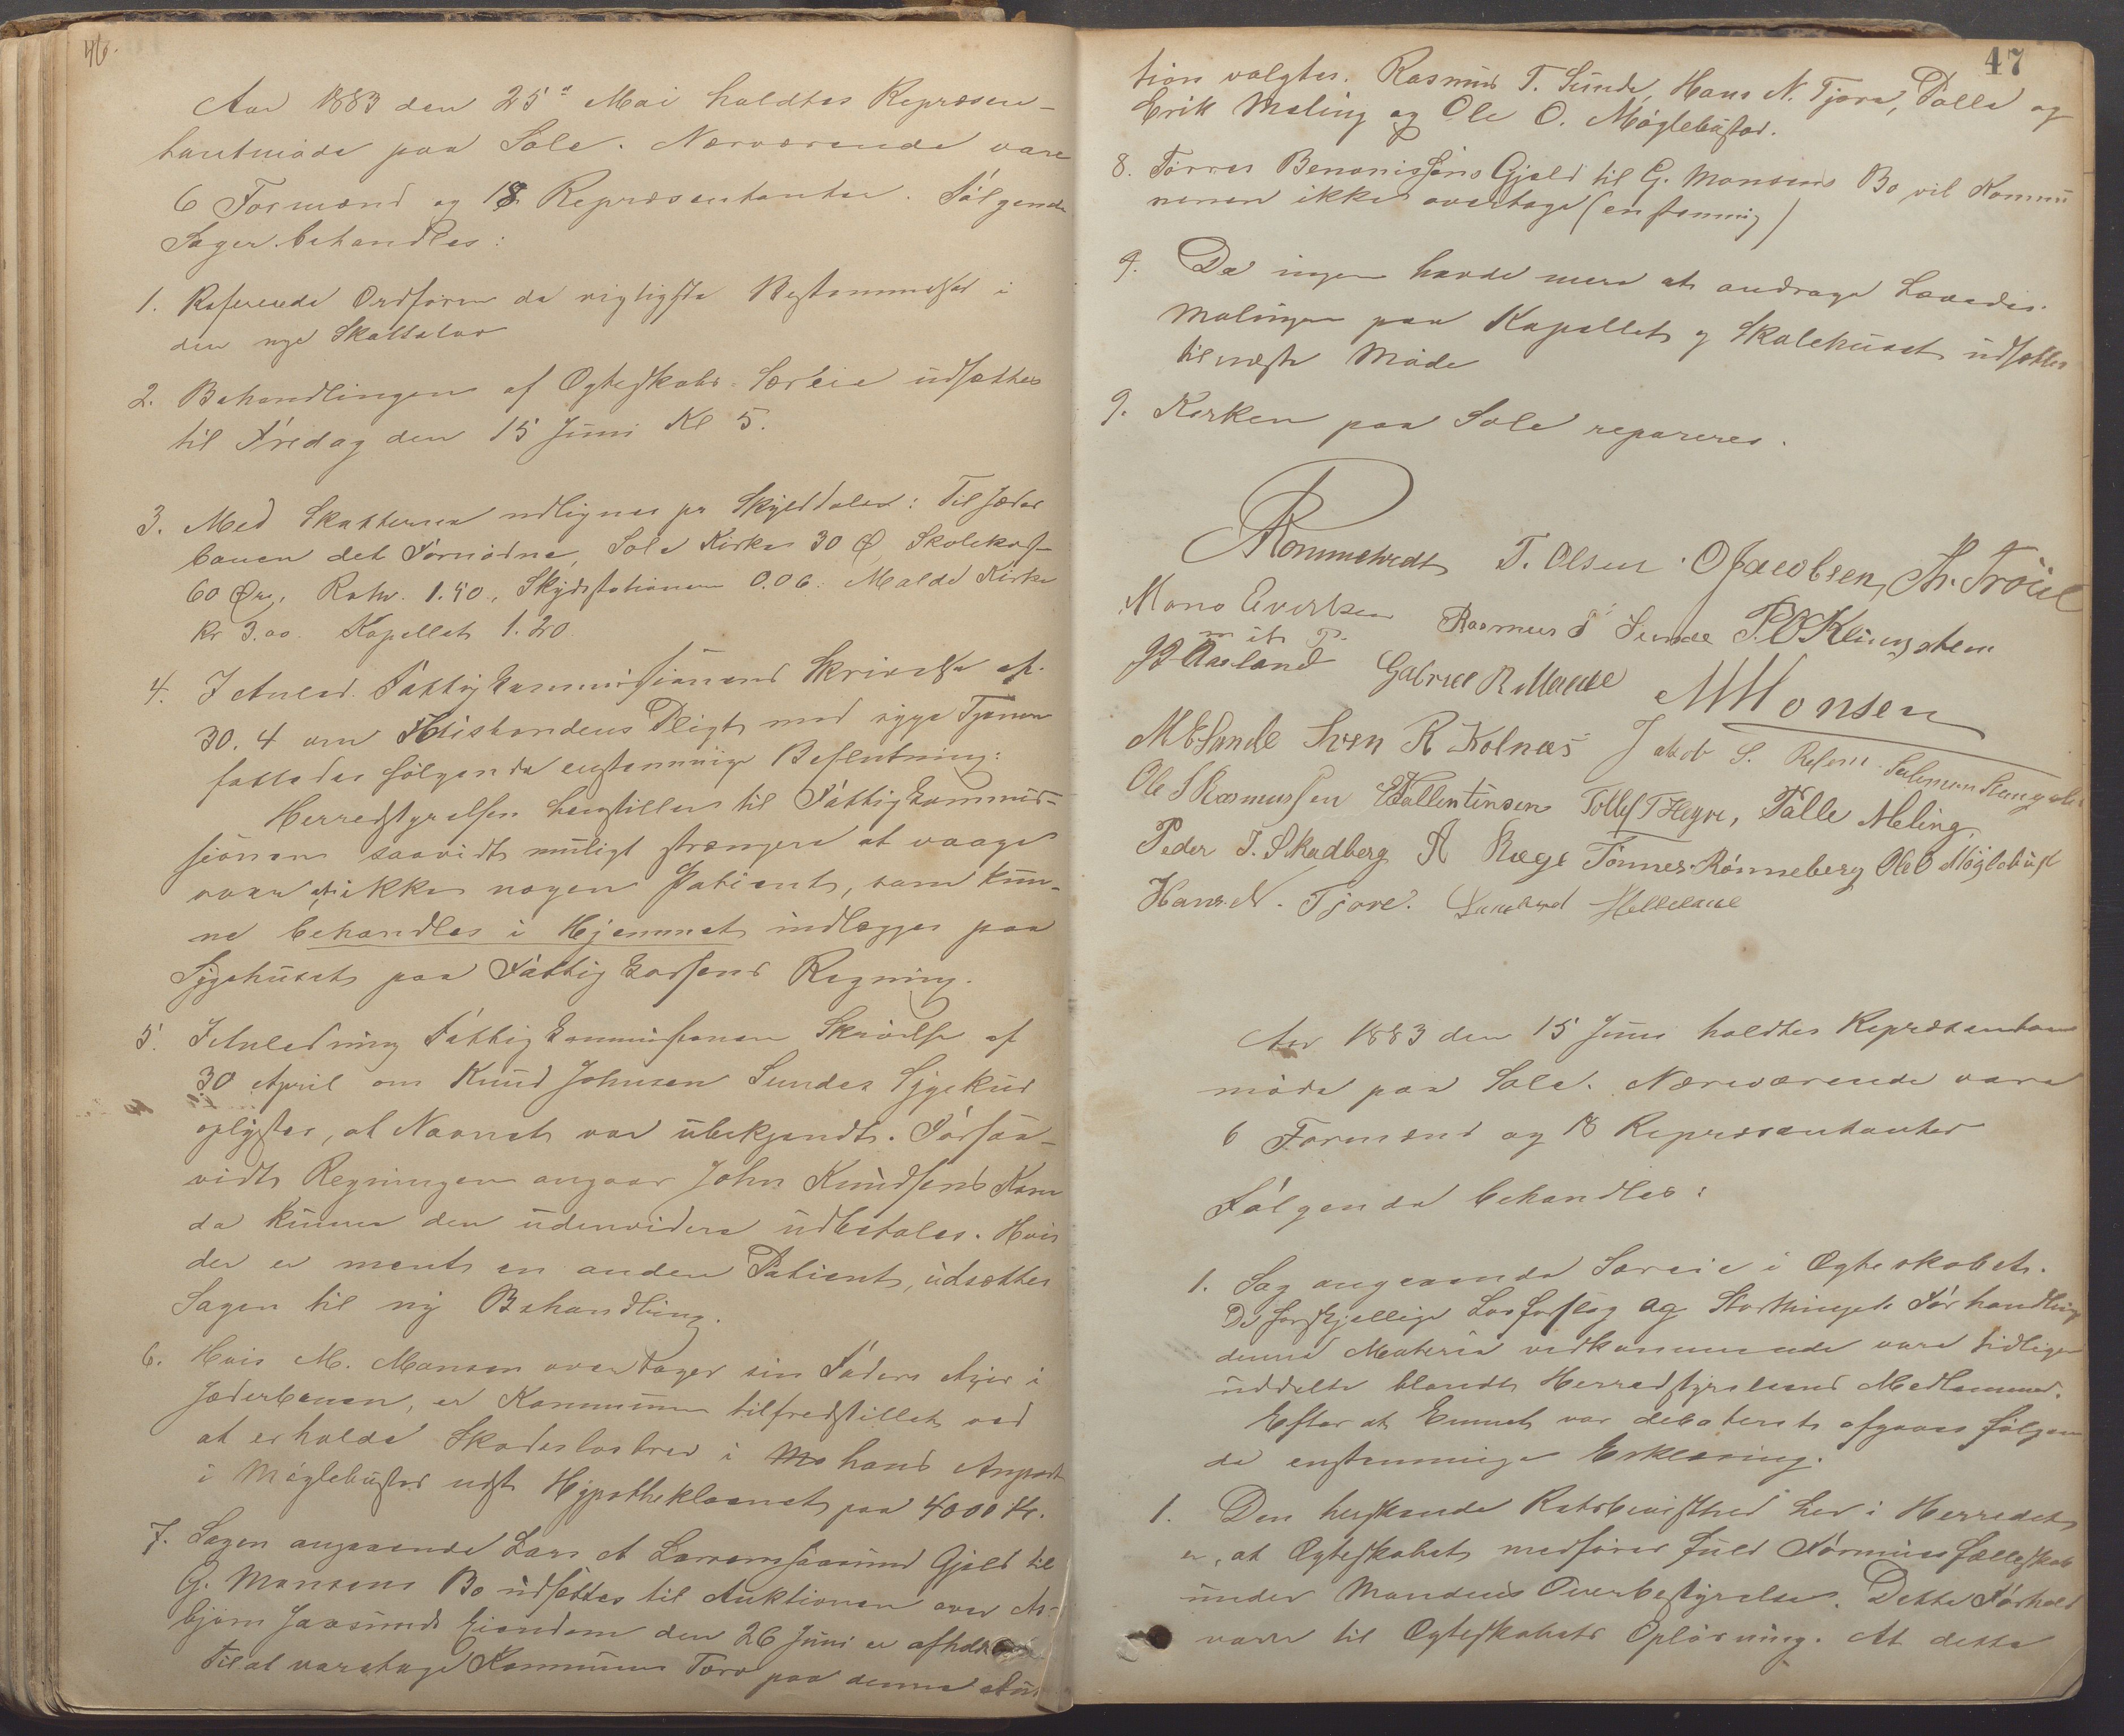 46.
Aar 1883 den 25de Mai holdtes Repræsen-
tantmøde paa Sole. Nærværende vare
6 Formænd og 18 Repræsentanter. Følgende
Sager behandles:
1. Refererede Ordføren de vigtigste Bestemmelser i
den nye Skattelov
2. Behandlingen af Ægteskabs-Særeie udsættes
til Fredag den 15 Juni Kl 5.
3. Med Skatterne udlignes pr Skylddaler: Til Jæder
banen det Fornødne, Sole Kirke 30 Ø, Skolekass
60 Øre, 1.40, Skydsstationen 0.06. Malde Kirke
Kr 3.00. Kapellet 1.20.
4. I Anled. Fattigkommissionens Skrivelse af
30.4 om Husbondens Pligt mod syge Tjenere
fattedes følgende enstemmige Beslutning:
Herredstyrelsen henstiller til Fattigkommis-
sionen saavidt muligt strængere at vaage
over at ikke nogen Patient, som kun-
ne behandles i Hjemmet indlægges paa
Sygehuset paa Fattigkassens Regning.
5. I Anledning Fattigkommissionen Skrivelse af
30 April om Knud Johnsen Sundes Sygekur
oplystes, at Navnet var ubekjendt. Forsaa-
vidt Regningen angaar John Knudsens Kone
da kunne den udenvidere udbetales. Hvis
der er ment en anden Patient, udsættes
Sagen til ny Behandling.
6. Hvis M. Monsen overtager sin Faders Axier i
Jæderbanen, er Kommunen tilfredstillet ved
at erholde Skadesløsbrev i Mo hans Anpart
i Møglebustad næst Hypotheklaanet paa 4000 Kr.
7. Sagen angaaende Lars A Gjæld til
G. Monsens Bo udsættes til Auktionen over As-
bjørn Jaasunds Eiendom den 26 Juni er afholdt
Til at varetage Kommunens Tarv paa denne Auk
47
tion valgtes. Rasmus T. Sunde, Hans N. Tjora, Tolle og
Erik Meling og Ole O. Møglebustad.
8. Torres Benonisøns Gjæld til G. Monsens Bo vil Kommu
nen ikke overtage (enstemmig)
9. Da ingen havde mere at andrage hævedes.
Malingen paa Kapellet og Skolehuset udsættes
til næste Møde
9. Kirken paa Sole repareres.
Rommetvedt T. Olsen O Jacobsen, Th. Tröiel
Mons Evertsen Rasmus T Sunde P. O Kleivesdalen
m it P.
Aasland Gabriel R Malde M Monsen
M E Sande Sven R Kolnæs Jakob S. Salomon Stangel
Ole S Rasmussen E Vallentinsen Tollef T Hegre, Tålle Meling,
Peder J. Skadberg A Ræge Tönnes Rönneberg Ole O Möglebust
Hans N. Tjore. Helleland
Aar 1883 den 15 Juni holdtes Repræsentant
møde paa Sole. Nærværende vare
6 Formænd og 18 Repræsentanter
Følgende behandles:
1. Sag angaaende Særeie i Ægteskabet.
De forskjellige Lovforslag og Storthingets Forhandlinger
denne Materie vedkommende vare tidligere
uddelte blandt Herredstyrelsens Medlemmer.
Efter at Emnet var debateret afgaves følgen
de enstemmige Erklæring.
1. Den herskende Retsbevisthed her i Herredet
er, at Ægteskabet medfører fuld Formuesfællesskab
under Mandens Overbestyrelse. Dette Forhold
varer til Ægteskabets Opløsning. At dette